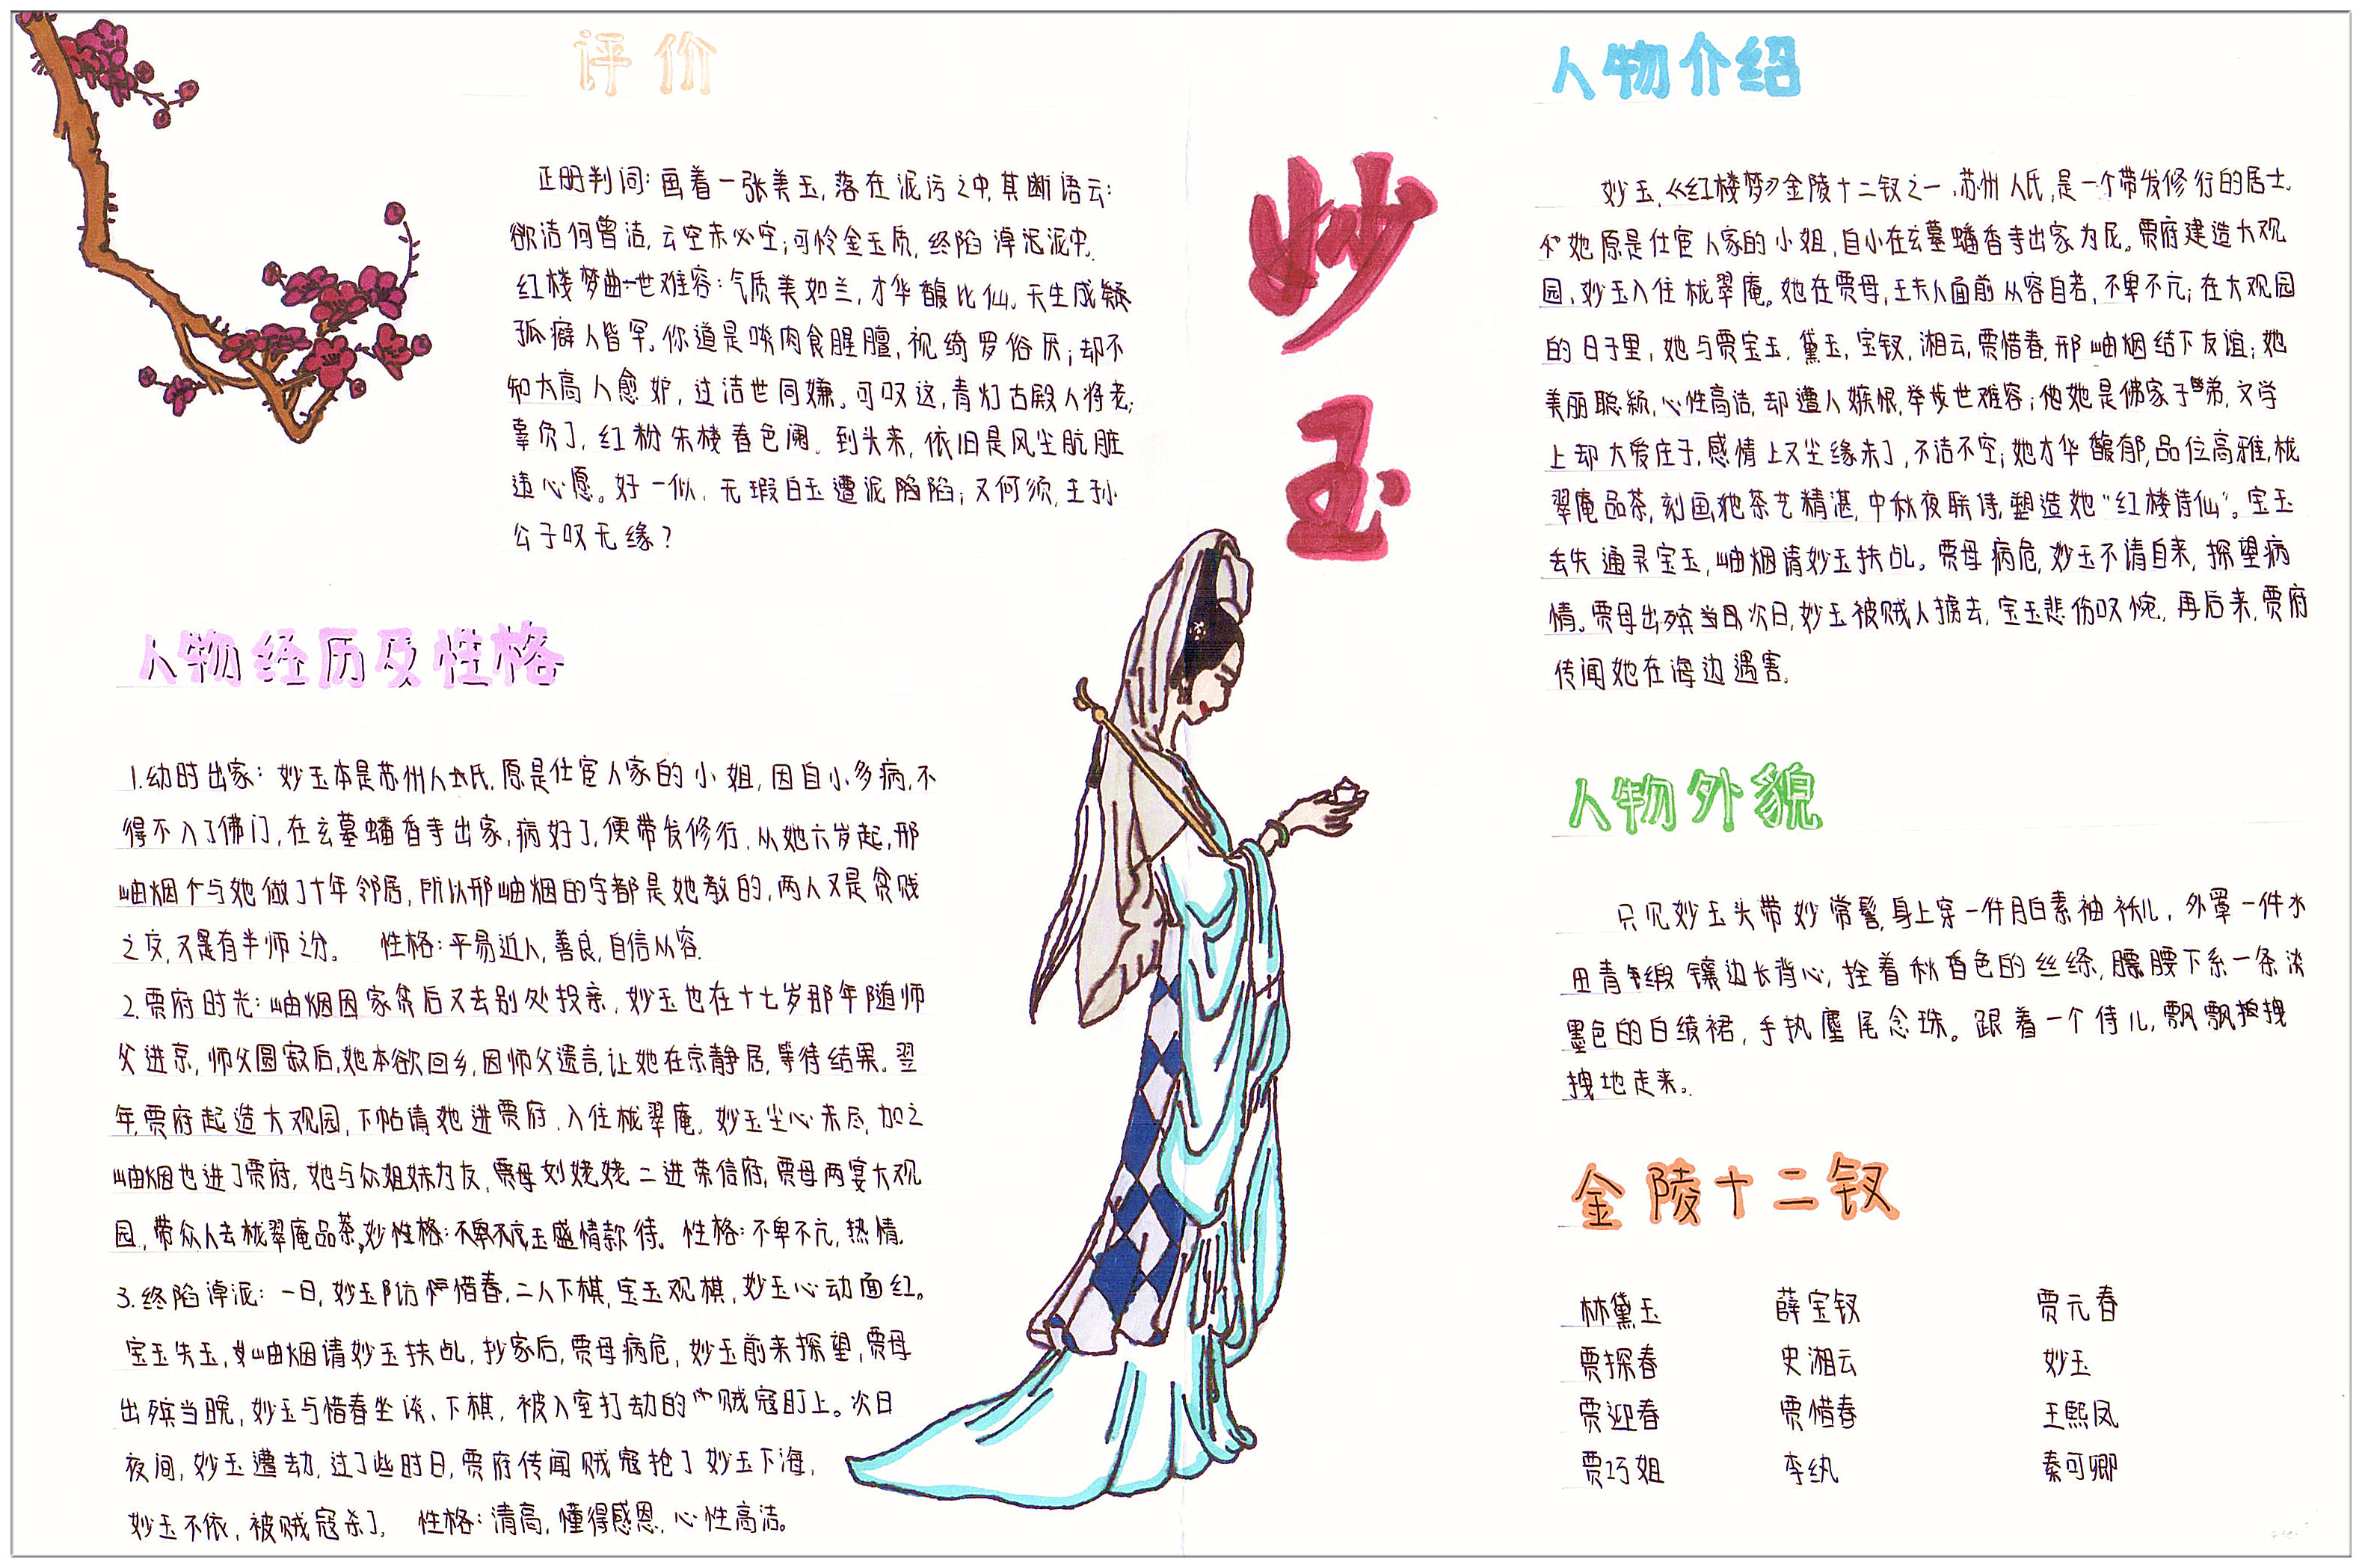 评价
正册判词：画着一张美玉，落在泥污之中，其断语云：
欲洁何曾洁，云空未必空；可怜金玉质，终陷淖泥中。
红楼梦曲一世难容：气质美如兰，才华馥比仙。天生成
孤癖人皆罕。你道是啖肉食腥膻，视绮罗俗厌；却不
知太高人愈妒，过洁世同嫌。可叹这，青灯古殿人将老；
辜负了，红粉朱楼春色阑。到头来，依旧是风尘肮脏
违心愿。好一似，无瑕白玉遭泥陷；又何须，王孙
公子叹无缘？
人物经历及性格
1.幼时出家：妙玉本是苏州人氏，原是仕宦人家的小姐，因自小多病，不
得不入了佛门，在玄墓蟠香寺出家，病好了，便带发修行，从她六岁起，邢
岫烟个与她做了十年邻居，所以邢岫烟的字都是她教的，两人又是贫贱
之交，又是有半师之分。 性格：平易近人，善良，自信从容.
2.贾府时光：岫烟因家贫后又去别处投亲，妙玉也在十七岁那年随师
父进京，师父圆寂后，她本欲回乡，因师父遗言，让她在京静居，等待结果。翌
年，贾府起造大观园，下帖请她进贾府，入住栊翠庵。妙玉尘心未尽，加之
岫烟也进了贾府，她与众姐妹为友，贾母刘姥姥二进荣信府，贾母两宴大观
园，带众人去栊翠庵品茶，妙性格：不卑不亢玉盛情款待。 性格：不卑不亢，热情.
3.终陷淖泥：一日，妙玉访惜春，二人下棋，宝玉观棋，妙玉心动面红。
宝玉失玉，岫烟请妙玉扶乩，抄家后，贾母病危，妙玉前来探望，贾母
出殡当晚，妙玉与惜春坐谈、下棋，被入室打劫的贼寇盯上。次日
夜间，妙玉遭劫，过了些时日，贾府传闻贼寇抢了妙玉下海，
妙玉不依，被贼寇杀了。 性格：清高，懂得感恩，心性高洁。
妙玉
人物介绍
妙玉，《红楼梦》金陵十二钗之一，苏州人氏，是一个带发修行的居士。
她原是仕宦人家的小姐，自小在玄墓蟠香寺出家为尼。贾府建造大观
园，妙玉入住栊翠庵。她在贾母，王夫人面前从容自若，不卑不亢；在大观园
的日子里，她与贾宝玉，黛玉，宝钗，湘云，贾惜春，邢岫烟结下友谊；她
美丽聪颖，心性高洁，却遭人嫉恨，举步世难容；他她是佛家子弟，文学
上却大爱庄子，感情上又尘缘未了，不洁不空；她才华馥郁，品位高雅，栊
翠庵品茶，刻画她茶艺精湛，中秋夜联诗，塑造她“红楼诗仙”。宝玉
丢失通灵宝玉，岫烟请妙玉扶乩。贾母病危，妙玉不请自来，探望病
情。贾母出殡当日次日，妙玉被贼人掳去，宝玉悲伤叹惋，再后来，贾府
传闻她在海边遇害。
人物外貌
只见妙玉头带妙常髻，身上穿一件月白素袖袄儿，外罩一件水
田青缎镶边长背心，拴着秋香色的丝绦，腰下系一条淡
墨色的白绫裙，手执麈尾念珠。跟着一个侍儿，飘飘拽拽
拽地走来。
金陵十二钗
林黛玉 薛宝钗 贾元春
贾探春 史湘云 妙玉
贾迎春 贾惜春 王熙凤
贾巧姐 李纨 秦可卿